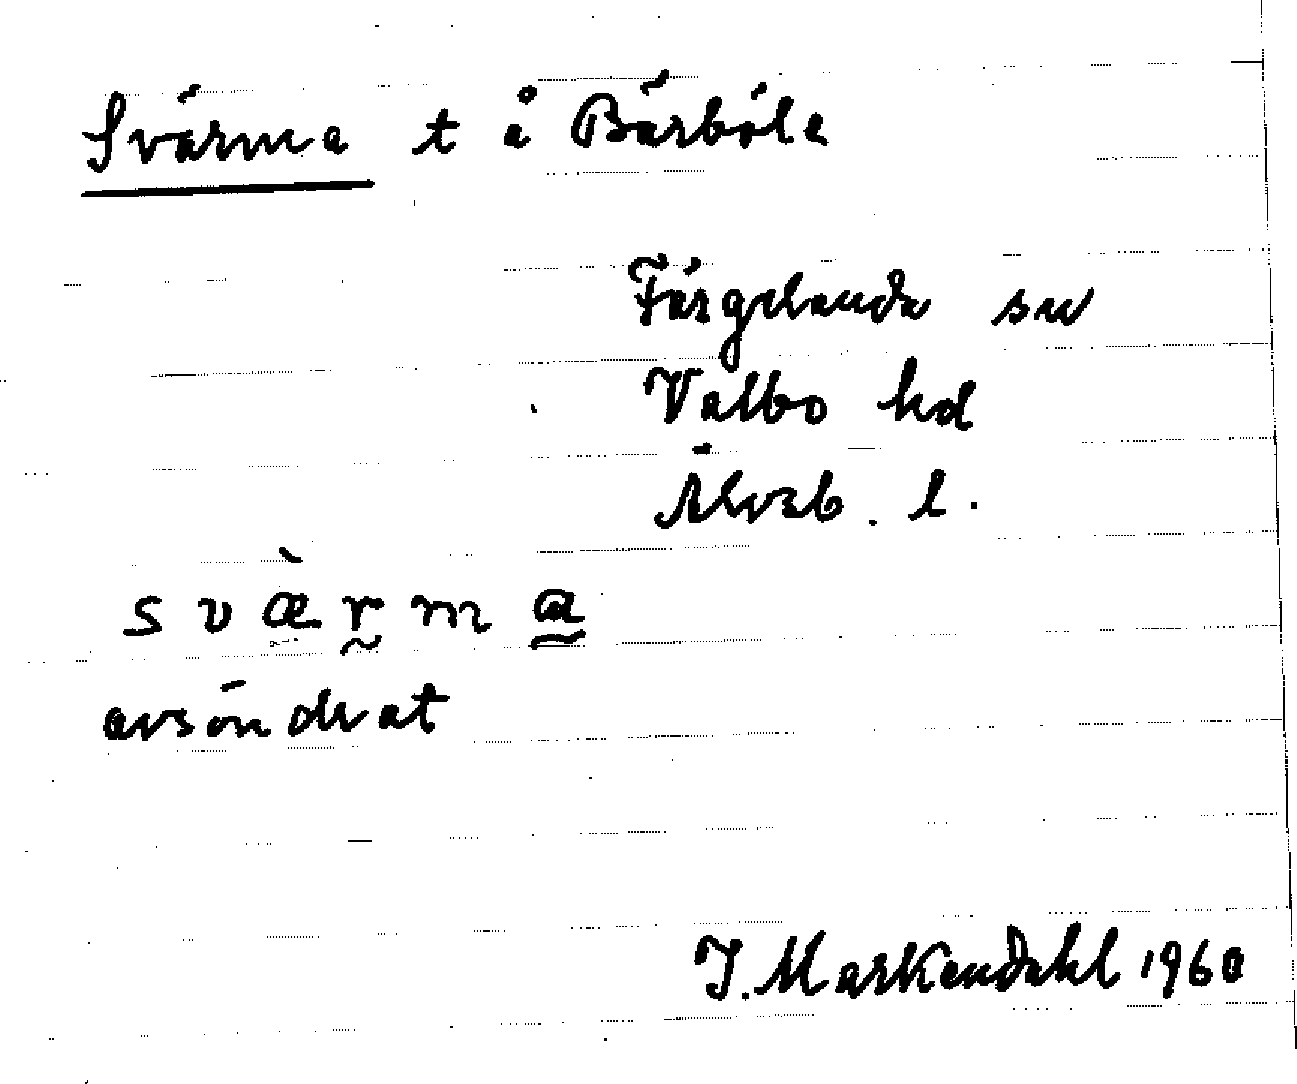 Svärma t å Bärböle
Färgelanda sn
Valbo hd
Älvsb. l.
s v æ̀ r̰ m a̳
avsöndrat
J. Markendahl 1960